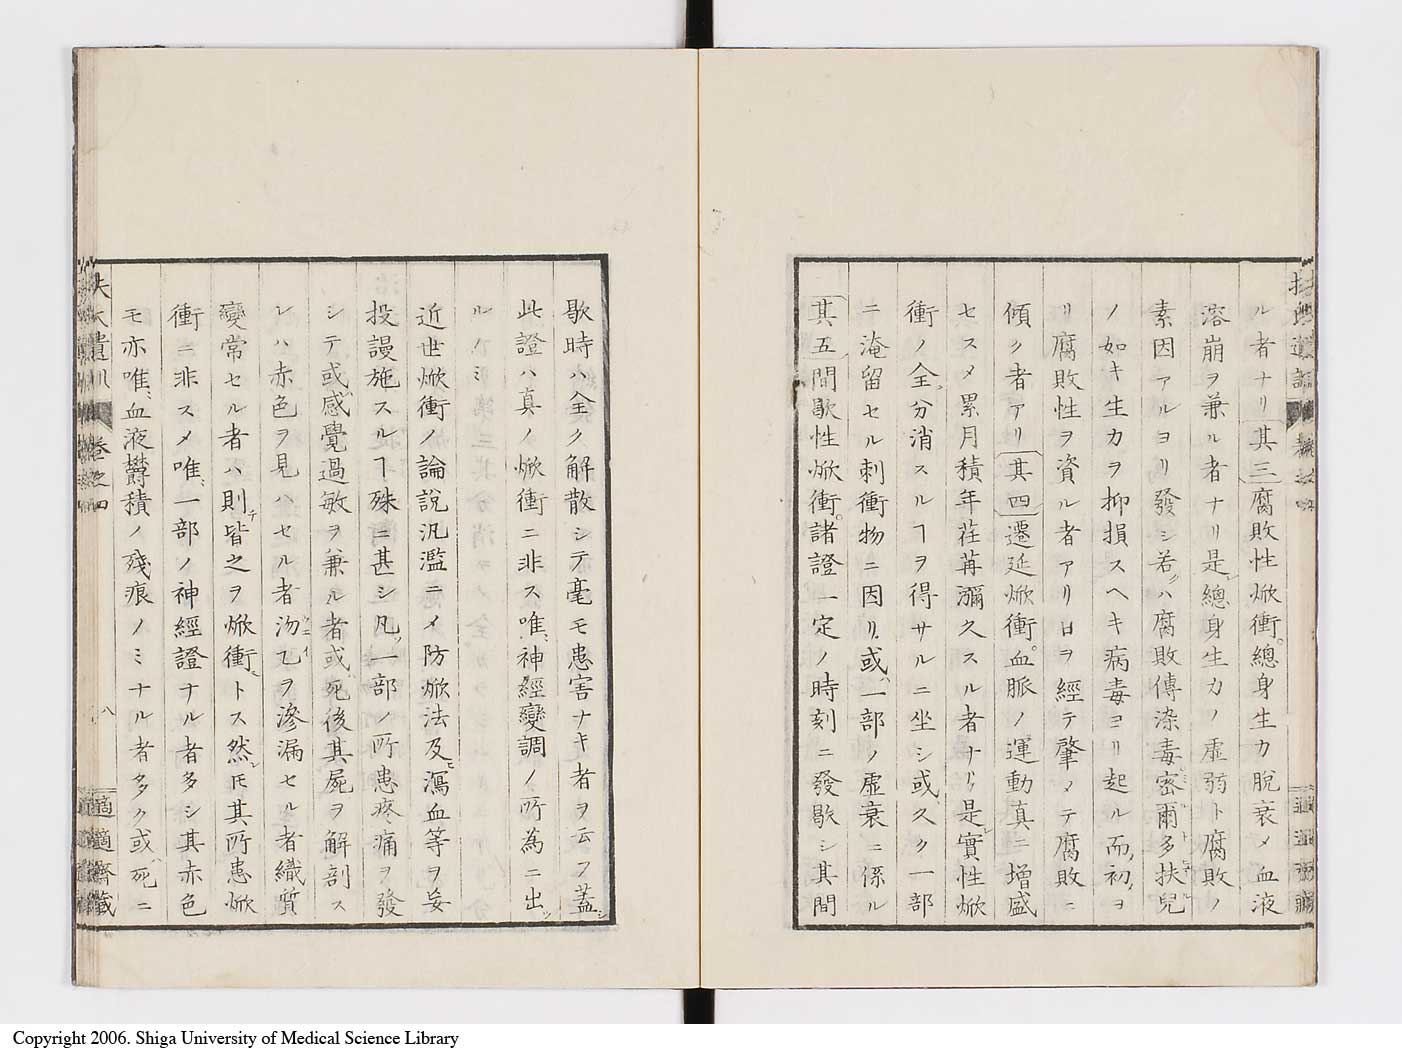 ル者ナリ其三腐敗性焮衝總身生力脫衰メ血液
溶崩ヲ兼ル者ナリ是總身生力ノ虛弱ト腐敗ノ
素因アルヨリ發シ若クハ腐敗傳染毒密爾多扶兒
ノ如キ生力ヲ抑損スヘキ病毒ヨリ起ル而初ヨ
リ腐敗性ヲ資ル者アリ日ヲ經テ肇メテ腐敗ニ
傾ク者アリ其四遷延焮衝血脈ノ運動真ニ增盛
セスメ累月積年荏苒瀰久スル者ナリ是實性焮
衝ノ全ク分消スルヿヲ得サルニ坐シ或久ク一部
ニ淹留セル刺衝物ニ因リ或ハ一部ノ虛衰ニ係ル
其五間歇性焮衝諸證一定ノ時刻ニ發歇シ其間
歇時ハ全ク解散シテ毫モ患害ナキ者ヲ云フ蓋シ
此證ハ真ノ焮衝ニ非ス唯神經變調ノ所為ニ出ツ
ルノミ
近世焮衝ノ論說汎濫ニメ防焮法及瀉血等ヲ妄
投謾施スルヿ殊ニ甚シ凡ソ一部ノ所患疼痛ヲ發
シテ或ハ感覺過敏ヲ兼ル者或ハ死後其屍ヲ解剖ス
レハ赤色ヲ見ハセル者汤乙ヲ滲漏セル者織質
變常セル者ハ則チ皆之ヲ焮衝トス然レ𪜈其所患焮
衝ニ非スメ唯一部ノ神經證ナル者多シ其赤色
モ亦唯血液欝積ノ殘痕ノミナル者多ク或ハ死ニ
扶氏遺訓 卷之四 八 適適齋藏
Copyright 2006. Shiga University of Medical Science Library